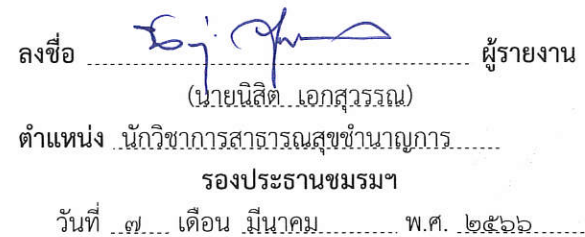 ลงชื่อ ผู้รายงาน
(นายนิสิต เอกสุวรรณ)
ตำแหน่ง นักวิชาการสาธารณสุขชำนาญการ
รองประธานชมรมฯ
วันที่ ๗ เดือน มีนาคม พ.ศ. ๒๕๖๖